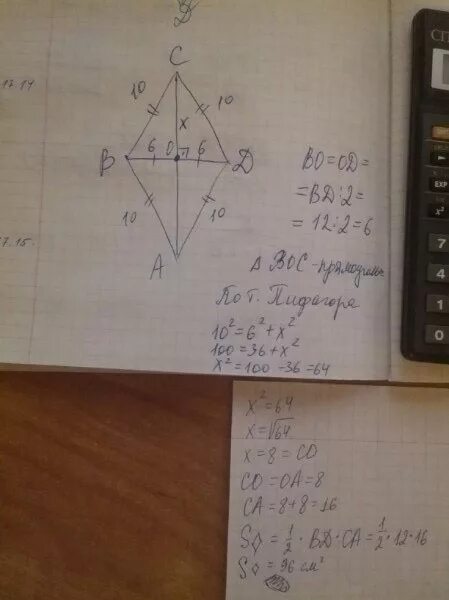 17.14
C
10 10
x
B 6 O 6 D
10 10
A
7.15.
BO=OD=
=BD:2=
=12:2=6
Δ BOC - прямоугол
По т. Пифагора
10²=6²+x²
100=36+x²
x²=100-36=64
x²=64
x=√64
x=8=CO
CO=OA=8
CA=8+8=16
S◊=1/2·BD·CA=1/2·12·16
S◊=96 см²
EXP
x²
7
4
1
0